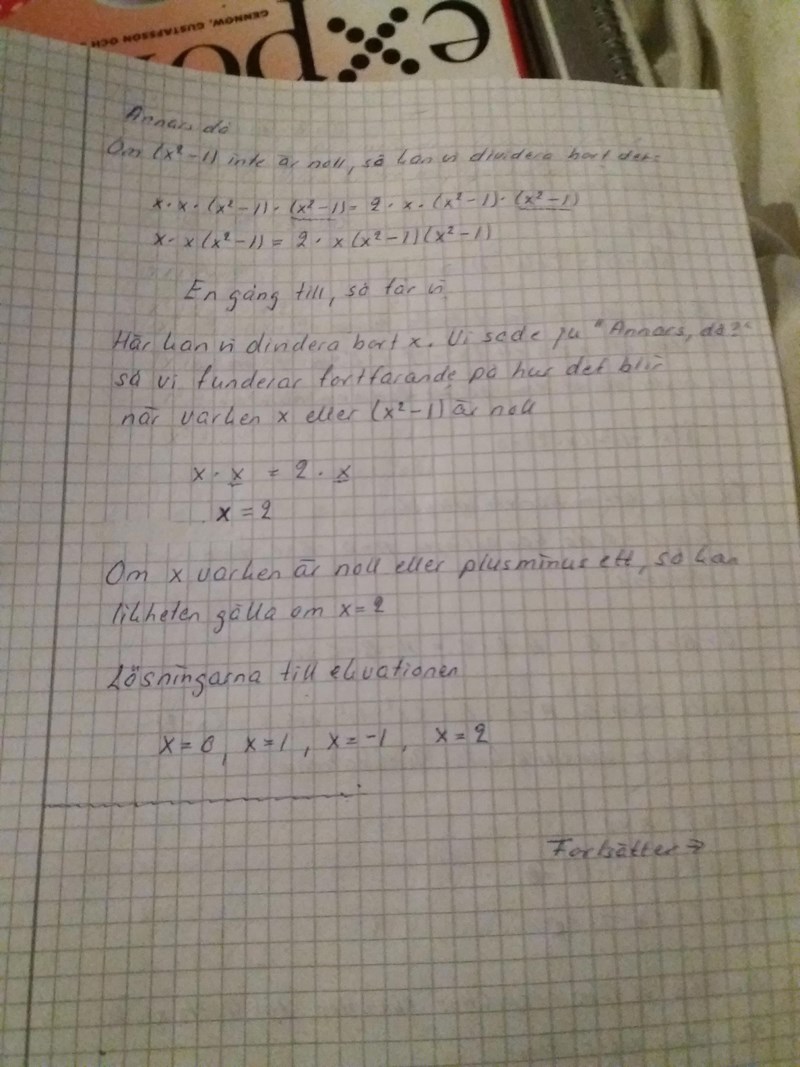 GENNOW, GUSTAFSSON OCH
expo
Annars då
Om (x²-1) inte är noll, så kan vi dividera bort det:
x·x·(x²-1)·(x²-1)= 2·x·(x²-1)·(x²-1)
x·x(x²-1) = 2·x(x²-1)(x²-1)
En gång till, så får vi
Här kan vi dividera bort x. Vi sade ju "Annars, då?"
så vi funderar fortfarande på hur det blir
när varken x eller (x²-1) är noll
x·x = 2·x
x=2
Om x varken är noll eller plusminus ett, så kan
likheten gälla om x=2
Lösningarna till ekvationen
x=0, x=1, x=-1, x=2
Fortsätter→